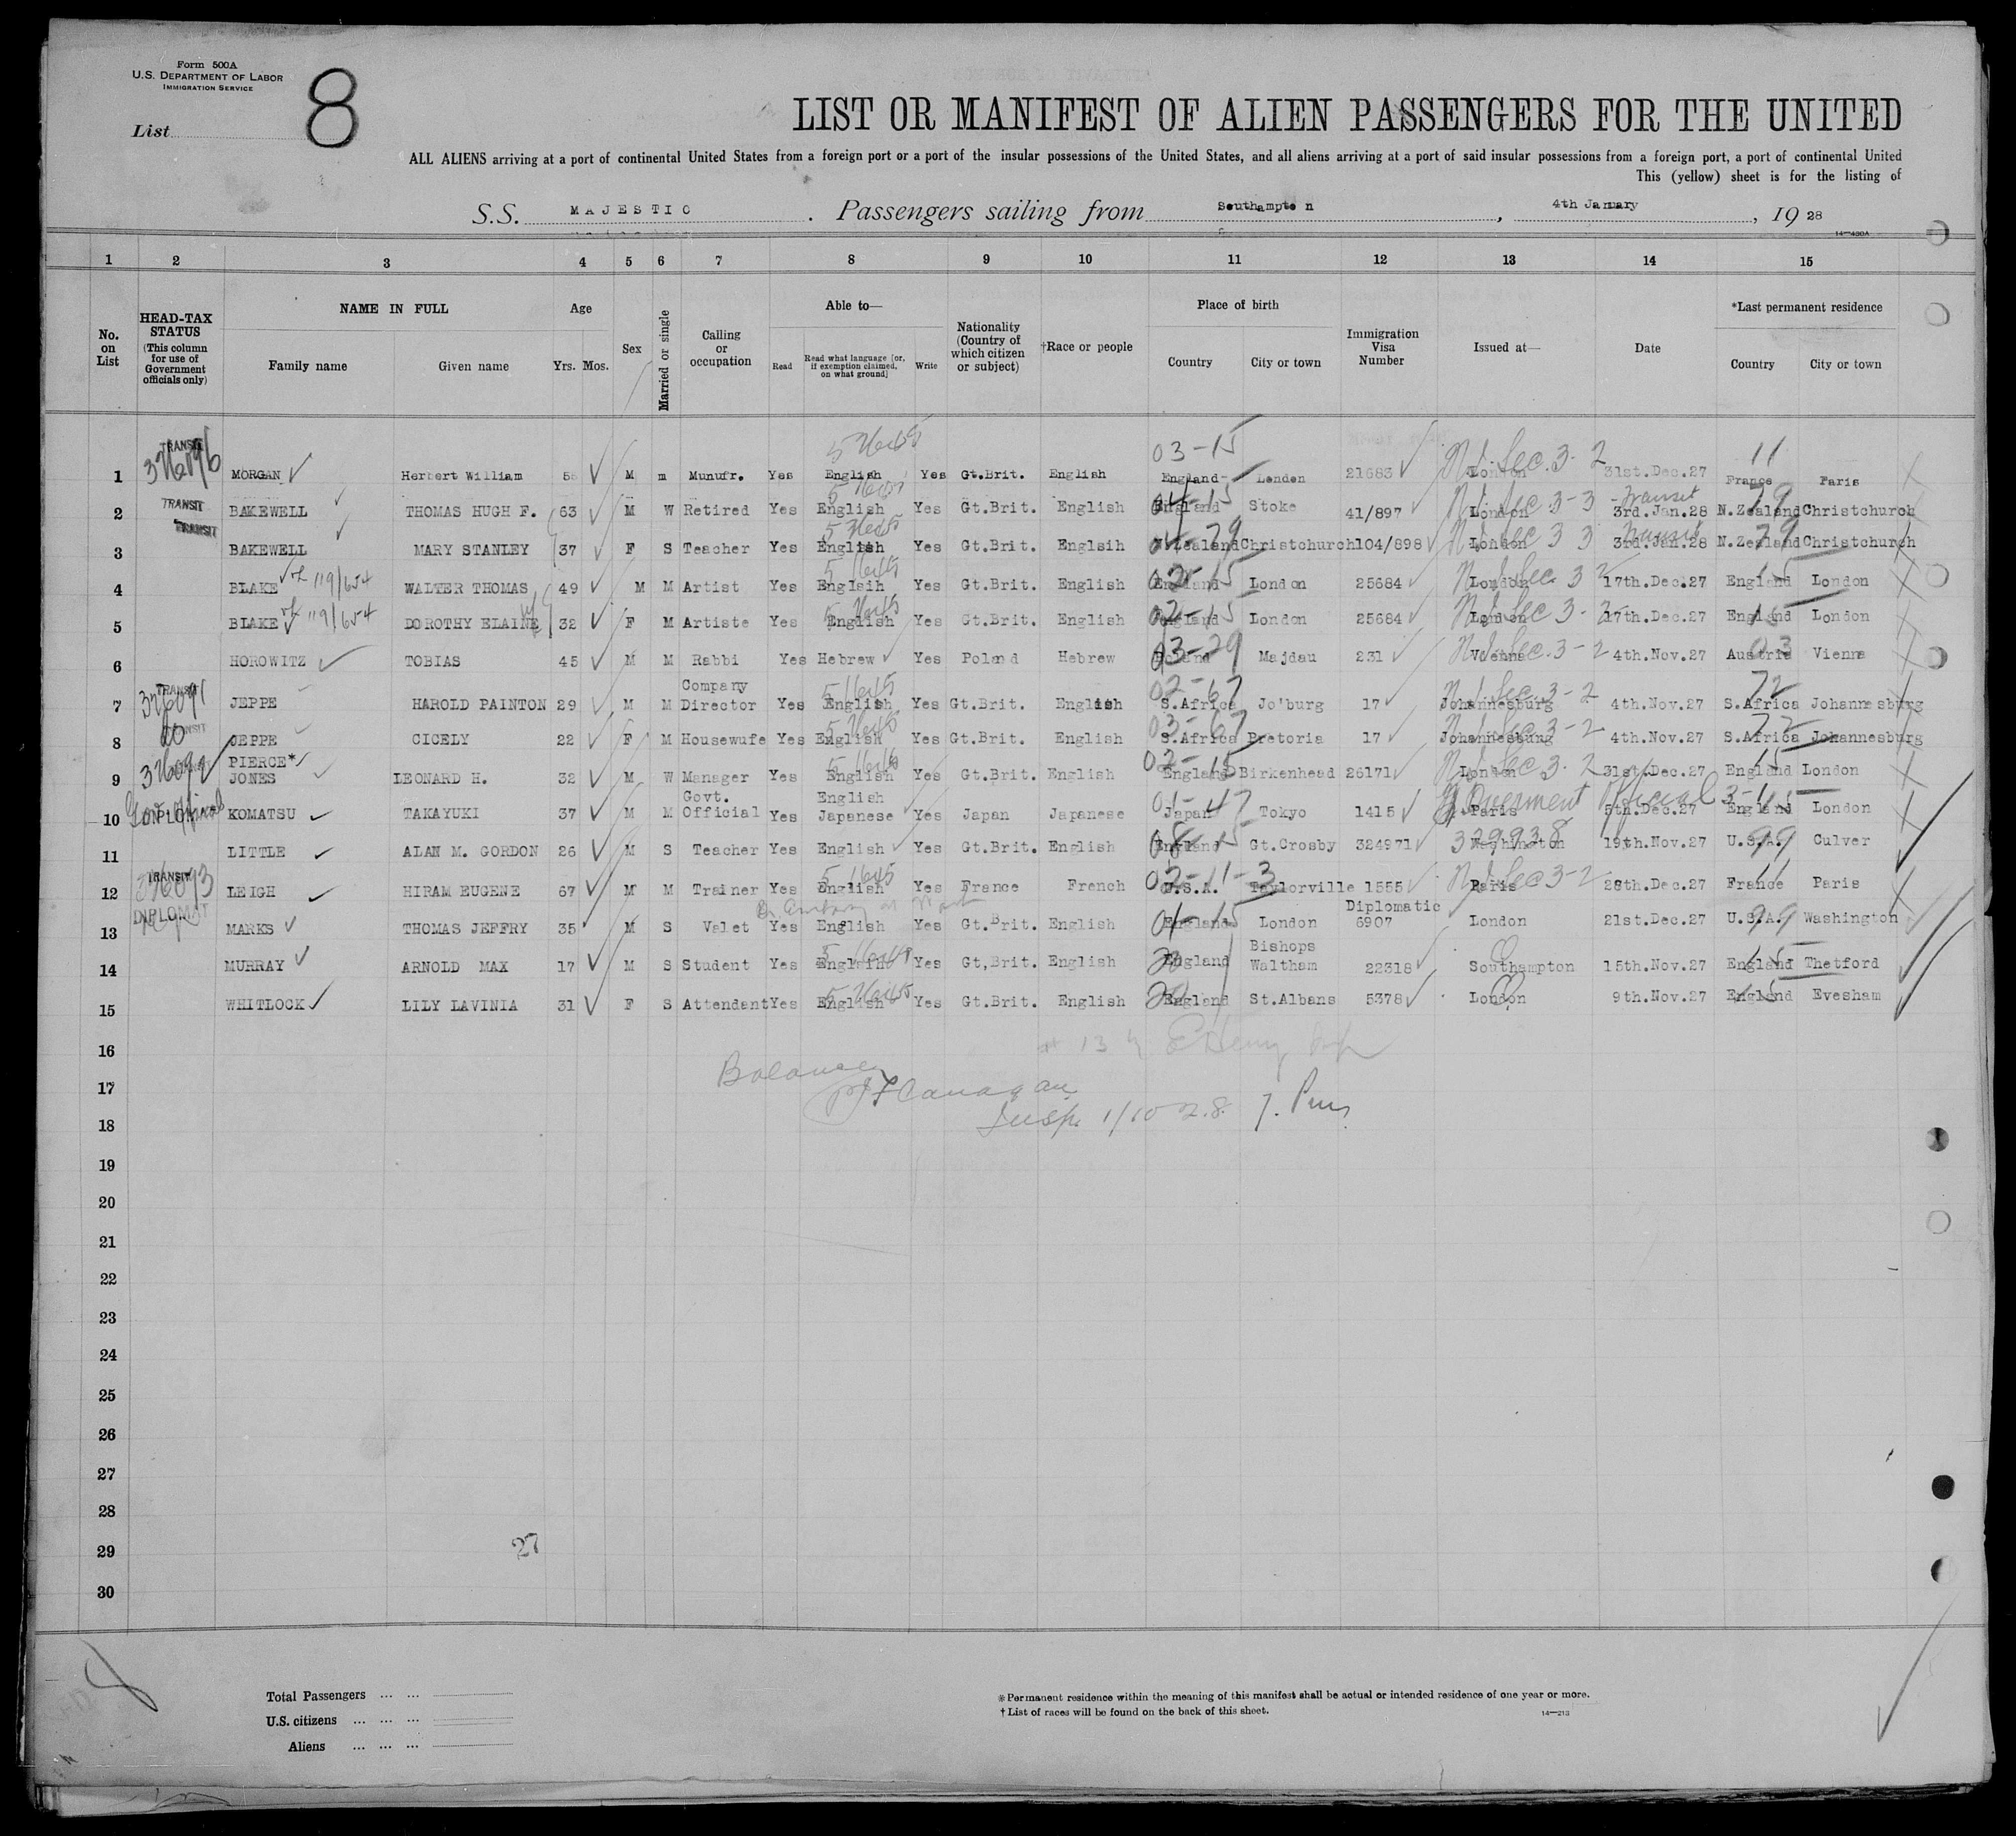 Form 500A
U.S. DEPARTMENT OF LABOR
IMMIGRATION SERVICE
List 8
LIST OR MANIFEST OF ALIEN PASSENGERS FOR THE UNITED
ALL ALIENS arriving at a port of continental United States from a foreign port or a port of the insular possessions of the United States, and all aliens arriving at a port of said insular possessions from a foreign port, a port of continental United
This (yellow) sheet is for the listing of
S.S. MAJESTIC. Passengers sailing from Southampton, 4th January, 1928
14—400A
1 2 3 4 5 6 7 8 9 10 11 12 13 14 15
No. on List
HEAD-TAX STATUS (This column for use of Government officials only)
NAME IN FULL
Family name Given name
Age Yrs. Mos.
Sex
Married or single
Calling or occupation
Able to— Read Read what language [or, if exemption claimed, on what ground] Write
Nationality (Country of which citizen or subject)
†Race or people
Place of birth Country City or town
Immigration Visa Number
Issued at—
Date
*Last permanent residence Country City or town
1 TRANSIT MORGAN Herbert William M m Munufr. Yes English Yes Gt.Brit. English England London 21683 London 31st.Dec.27 France Paris
2 TRANSIT BAKEWELL THOMAS HUGH F. 63 M W Retired Yes English Yes Gt.Brit. English England Stoke 41/897 London 3rd.Jan.28 N.Zealand Christchurch
3 TRANSIT BAKEWELL MARY STANLEY 37 F S Teacher Yes English Yes Gt.Brit. Englsih N.Zealand Christchurch 104/898 London 3rd.Jan.28 N.Zealand Christchurch
4 BLAKE 119/654 WALTER THOMAS 49 M M Artist Yes Englsih Yes Gt.Brit. English England London 25684 London 17th.Dec.27 England London
5 BLAKE 119/654 DOROTHY ELAINE 32 F M Artiste Yes English Yes Gt.Brit. English England London 25684 London 17th.Dec.27 England London
6 HOROWITZ TOBIAS 45 M M Rabbi Yes Hebrew Yes Poland Hebrew Poland Majdau 231 Vienna 4th.Nov.27 Austria Vienna
7 TRANSIT JEPPE HAROLD PAINTON 29 M M Company Director Yes English Yes Gt.Brit. English S.Africa Jo'burg 17 Johannesburg 4th.Nov.27 S.Africa Johannesburg
8 TRANSIT JEPPE CICELY 22 F M Housewufe Yes English Yes Gt.Brit. English S.Africa Pretoria 17 Johannesburg 4th.Nov.27 S.Africa Johannesburg
9 PIERCE* JONES LEONARD H. 32 M W Manager Yes English Yes Gt.Brit. English England Birkenhead 26171 London 31st.Dec.27 England London
10 KOMATSU TAKAYUKI 37 M M Govt. Official Yes English Japanese Yes Japan Japanese Japan Tokyo 1415 Paris 5th.Dec.27 England London
11 LITTLE ALAN M. GORDON 26 M S Teacher Yes English Yes Gt.Brit. English England Gt.Crosby 324971 Washington 19th.Nov.27 U.S.A. Culver
12 TRANSIT LEIGH HIRAM EUGENE 67 M M Trainer Yes English Yes France French U.S.A. Taylorville 1555 Paris 28th.Dec.27 France Paris
13 DIPLOMAT MARKS THOMAS JEFFRY 35 M S Valet Yes English Yes Gt.Brit. English England London Diplomatic 6907 London 21st.Dec.27 U.S.A. Washington
14 MURRAY ARNOLD MAX 17 M S Student Yes Englsih Yes Gt,Brit. English England Bishops Waltham 22318 Southampton 15th.Nov.27 England Thetford
15 WHITLOCK LILY LAVINIA 31 F S Attendant Yes English Yes Gt.Brit. English England St.Albans 5378 London 9th.Nov.27 England Evesham
16
17
18 Insp. 1/10 28
19
20
21
22
23
24
25
26
27
28
29 27
30
Total Passengers ... ...
U.S. citizens ... ... ...
Aliens ... ... ...
* Permanent residence within the meaning of this manifest shall be actual or intended residence of one year or more.
† List of races will be found on the back of this sheet.
14—213